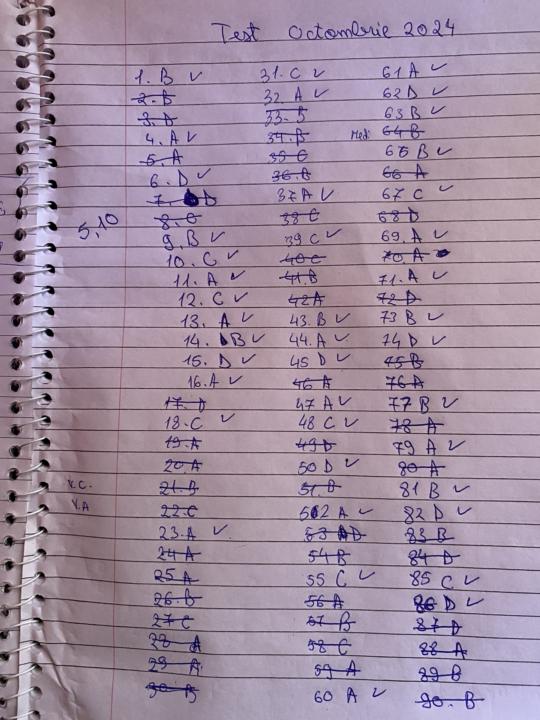 Test Octombrie 2024
1. B ✓ 31. C ✓ 61 A ✓
2. B 32. A ✓ 62 D ✓
3. D 33. B 63 B ✓
4. A ✓ 34. B Med: 64 B
5. A 35 C 65 B ✓
6. D ✓ 36. B 66 A
7. D 37 A ✓ 67 C ✓
8. C 38 C 68 D
5,10
9. B ✓ 39 C ✓ 69. A ✓
10. C ✓ 40 C 70. A
11. A ✓ 41. B 71. A ✓
12. C ✓ 42 A 72 D
13. A ✓ 43. B ✓ 73 B ✓
14. B ✓ 44. A ✓ 74 D ✓
15. D ✓ 45 D ✓ 75 B
16. A ✓ 46 A 76 A
17. D 47 A ✓ 77 B ✓
18. C ✓ 48 C ✓ 78 A
19. A 49 D 79 A ✓
20. A 50 D ✓ 80 A
21. B 51. B 81 B ✓
22. C 52 A ✓ 82 D ✓
23. A ✓ 53 D 83 B
24 A 54 B 84 D
25 A 55 C ✓ 85 C ✓
26. B 56 A 86 D ✓
27 C 57 B 87 D
28 A 58 C 88 A
29 A 59 A 89 B
30 B 60 A ✓ 90. B